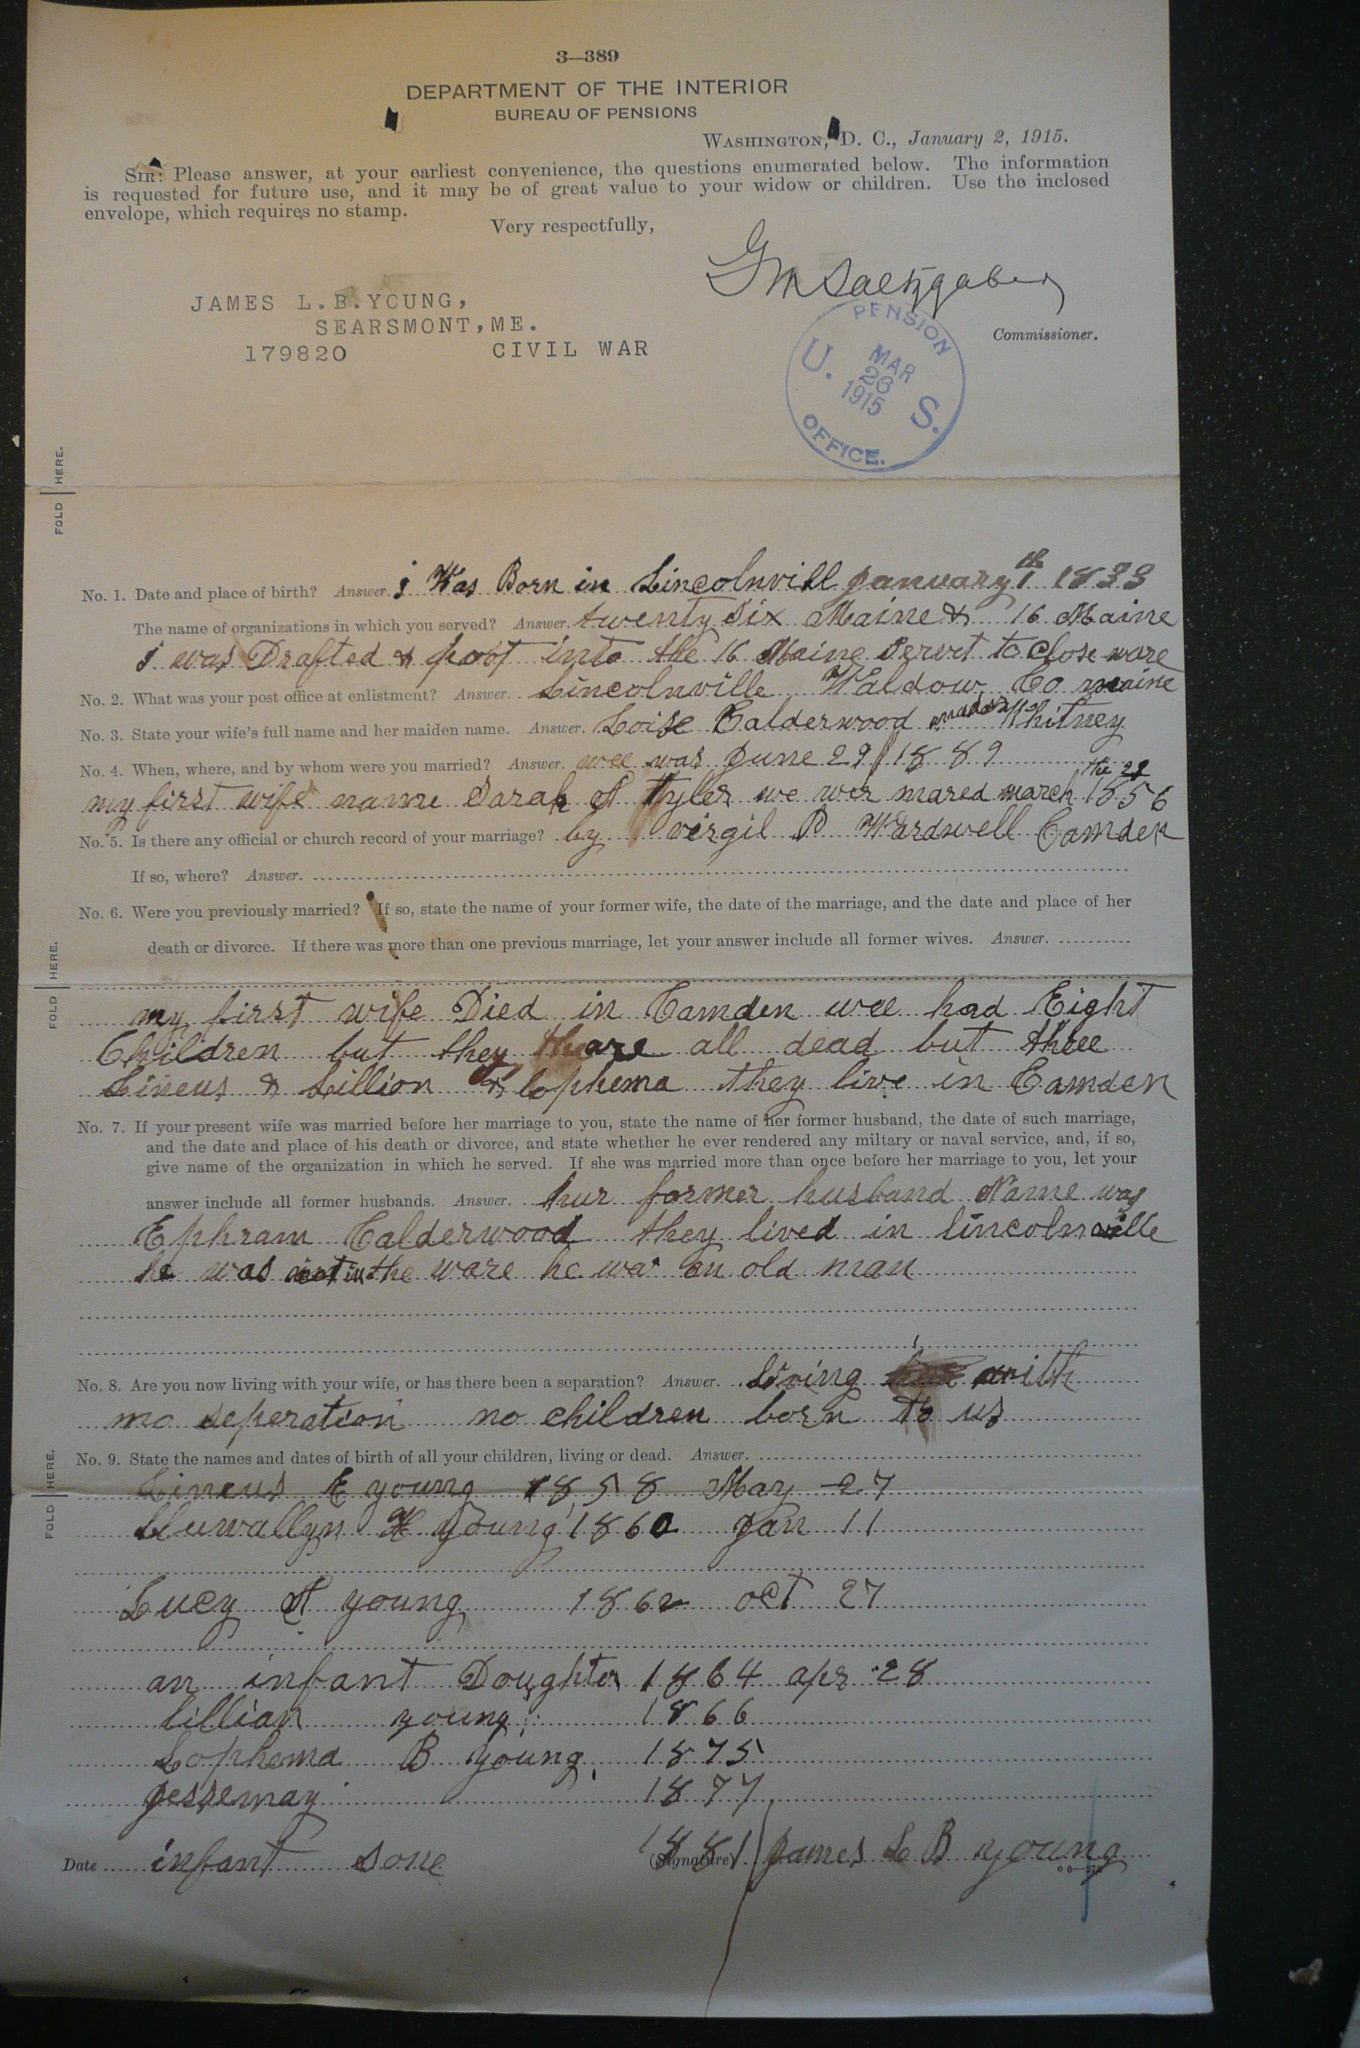 3—389
DEPARTMENT OF THE INTERIOR
BUREAU OF PENSIONS
WASHINGTON, D. C., January 2, 1915.
SIR: Please answer, at your earliest convenience, the questions enumerated below. The information
is requested for future use, and it may be of great value to your widow or children. Use the inclosed
envelope, which requires no stamp.
Very respectfully,
G M Saltzgaber
Commissioner.
JAMES L.B.YOUNG,
SEARSMONT, ME.
179820 CIVIL WAR
PENSION
U. S.
MAR
26
1915
OFFICE.
FOLD HERE.
No. 1. Date and place of birth? Answer. i Was Born in Lincolnvill January 1th 1833
The name of organizations in which you served? Answer. twenty six Maine & 16 Maine
i was Drafted & poot into the 16 Maine Servet to Close ware
No. 2. What was your post office at enlistment? Answer. Lincolnville Waldow Co maine
No. 3. State your wife's full name and her maiden name. Answer. Loise Calderwood Whitney
No. 4. When, where, and by whom were you married? Answer. wee was June 29 1889
my first wife name Sarah A Tyler we wer mared march the 22 1856
No. 5. Is there any official or church record of your marriage? by virgil P Wardswell Camden
If so, where? Answer.
No. 6. Were you previously married? If so, state the name of your former wife, the date of the marriage, and the date and place of her
death or divorce. If there was more than one previous marriage, let your answer include all former wives. Answer.
FOLD HERE.
my first wife Died in Camden wee had Eight
Children but they are all dead but three
Lineus & Lillion & Lophema they live in Camden
No. 7. If your present wife was married before her marriage to you, state the name of her former husband, the date of such marriage,
and the date and place of his death or divorce, and state whether he ever rendered any miltary or naval service, and, if so,
give name of the organization in which he served. If she was married more than once before her marriage to you, let your
answer include all former husbands. Answer. hur former husband Name was
Ephram Calderwood they lived in lincolnville
he was not in the ware he wa an old man
No. 8. Are you now living with your wife, or has there been a separation? Answer. Living with
no seperation no children born to us
No. 9. State the names and dates of birth of all your children, living or dead. Answer.
FOLD HERE.
Lineus E young 1858 May 27
Lluwallyn H young 1860 Jan 11
Lucy A young 1862 oct 27
an infant Doughter 1864 apr 28
lillian young 1866
Lophema B young 1875
Jessemay 1877
Date infant sone 1881 (Signature) James L B young